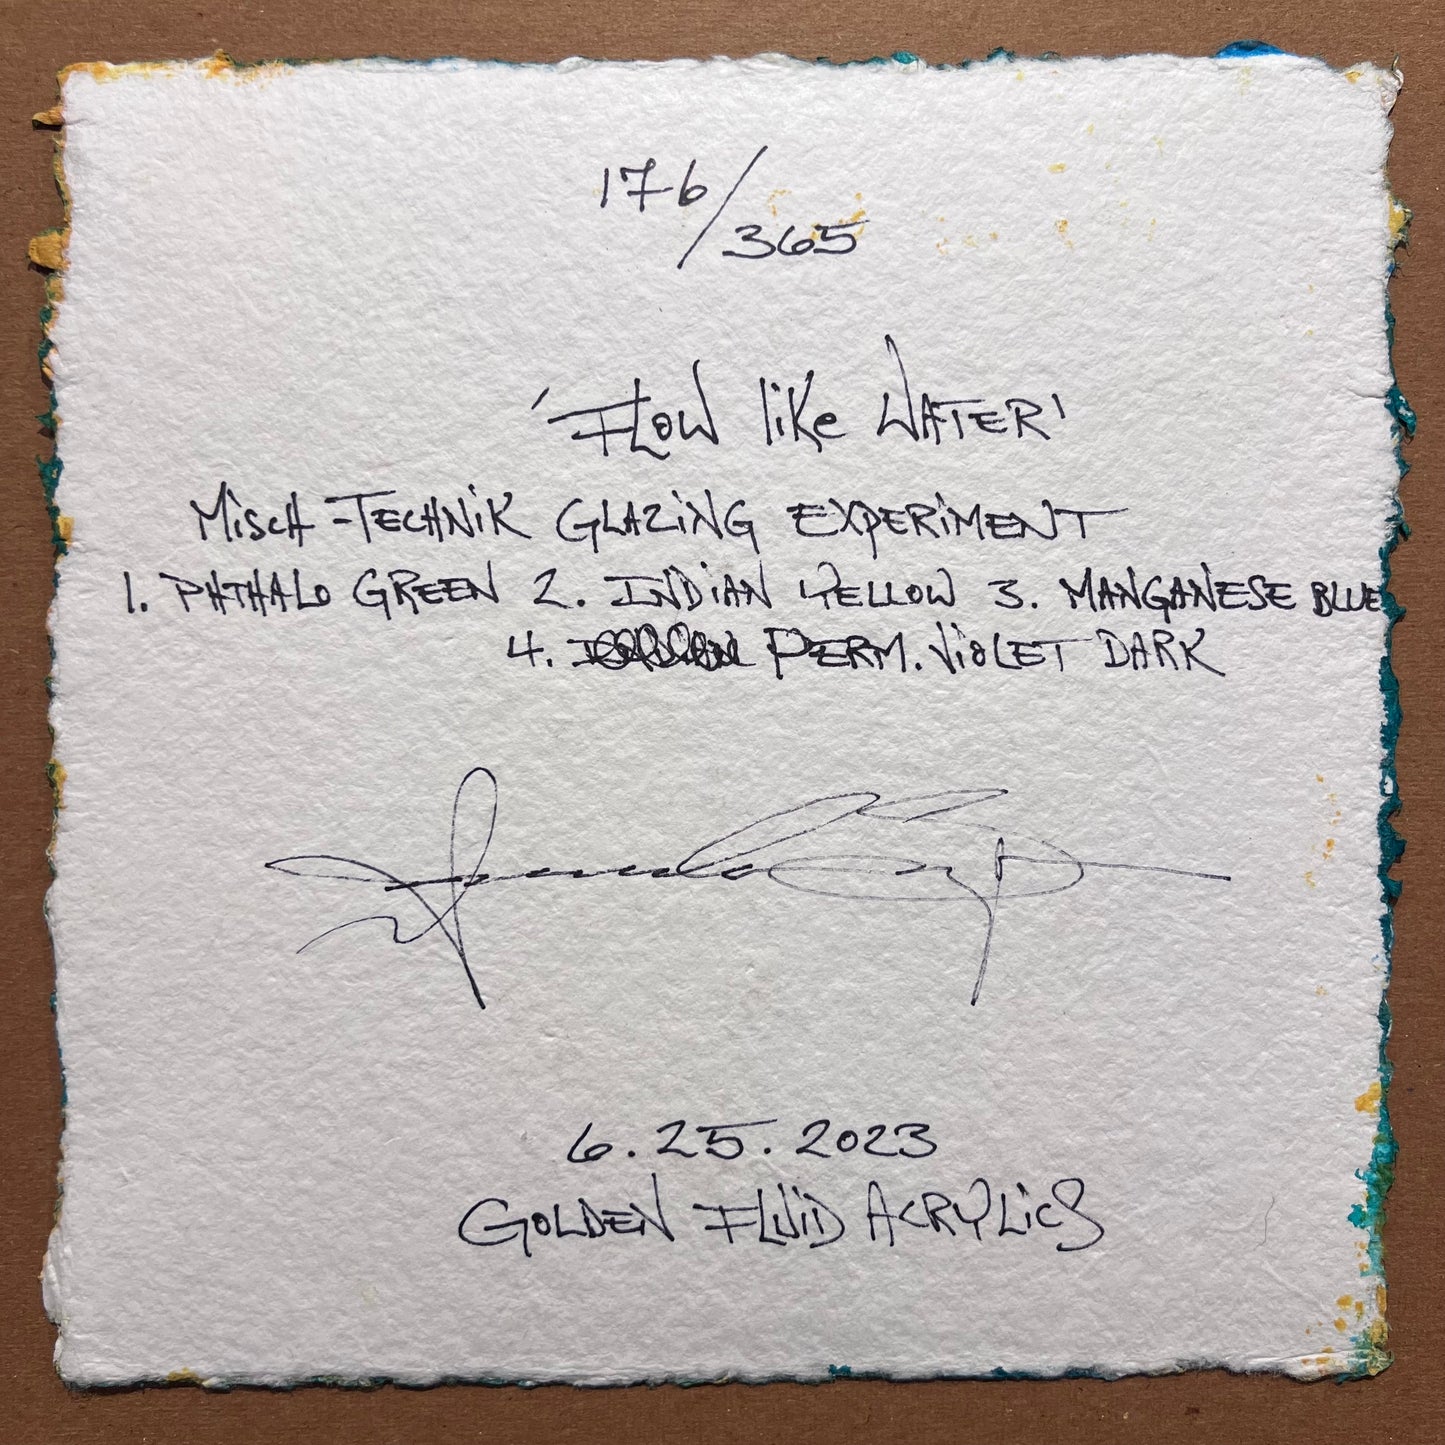 176/365
'Flow like WATER'
Misch-TECHNiK GLAZiNG EXPERiMENT
1. PHTHALO GREEN 2. INDiAN YELLOW 3. MANGANESE BLUE
4. PERM. ViOLET DARK
6.25.2023
GOLDEN FLUiD ACRYLiCS